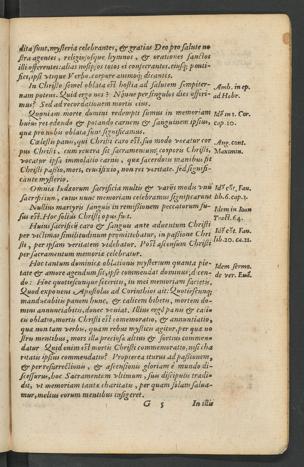 dita sunt, mysteria celebrantes, & gratias Deo pro salute nostra agentes, religiososque hymnos, & orationes sanctos
illi offerentes: alias nosipsos totos ei consecrantes, eiusq; pontifici, ipsi vtique Verbo, corpore, animoq; dicantes.
In Christo semel oblata est hostia ad salutem sempiternam potens. Quid ergo nos? Nonne per singulos dies offerimus? Sed ad recordationem mortis eius.
Amb. in ep. ad Hebr.
Quoniam morte domini redempti sumus in memoriam huius rei edendo & potando carnem & sanguinem ipsius, qua pro nobis oblata sunt significamus.
Idem in 1. Cor. cap. 10.
Cælestis panis, qui Christi caro est, suo modo vocatur corpus Christi, cum reuera sit sacramentum corporis Christi, vocatur ipsa immolatio carnis, quæ sacerdotis manibus fit Christi passio, mors, crucifixio, non rei veritate, sed significante mysterio.
Aug. cont. Maximin.
Omnia Iudæorum sacrificia multis & varijs modis vnū sacrificium, cuius nunc memoriam celebramus significarunt
Idem cōt. Fau. lib. 6. cap. 5.
Nullius martyris sanguis in remissionem peccatorum fusus est. Hoc solius Christi opus fuit.
Idem in Ioan Tract. 84.
Huius sacrificij caro & sanguis ante aduentum Christi per victimas similitudinum promittebatur, in passione Christi, per ipsam veritatem reddebatur. Post ascensum Christi per sacramentum memoriæ celebratur.
Idem cōt. Fau. lib. 20. ca. 21.
Hoc tantum dominicæ oblationis mysterium quanta pietate & amore agendum sit, ipse commendat dominus, dicendo: Hoc quotiescunque feceritis, in mei memoriam facietis. Quod exponens Apostolus ad Corinthios ait: Quotiescunq; manducabitis panem hunc, & calicem bibetis, mortem domini annunciabitis, donec veniat. Illius ergò panis & calicis oblatio, mortis Christi est commemoratio, & annunciatio, quæ non tam verbis, quam rebus mysticis agitur, per quæ nostris mentibus, mors illa preciosa altius & fortius commendatur. Quid enim est mortis Christi commemoratio, nisi charitatis ipsius commendatio? Propterea iturus ad passionem, & per resurrectionem, & ascensionis gloriam è mundo discessurus, hoc Sacramentum vltimum, suis discipulis tradidit, vt memoriam tantæ charitatis, per quam solam saluamur, melius eorum mentibus infigeret.
Idem sermo. de ver. Eud.
G 5
In illis